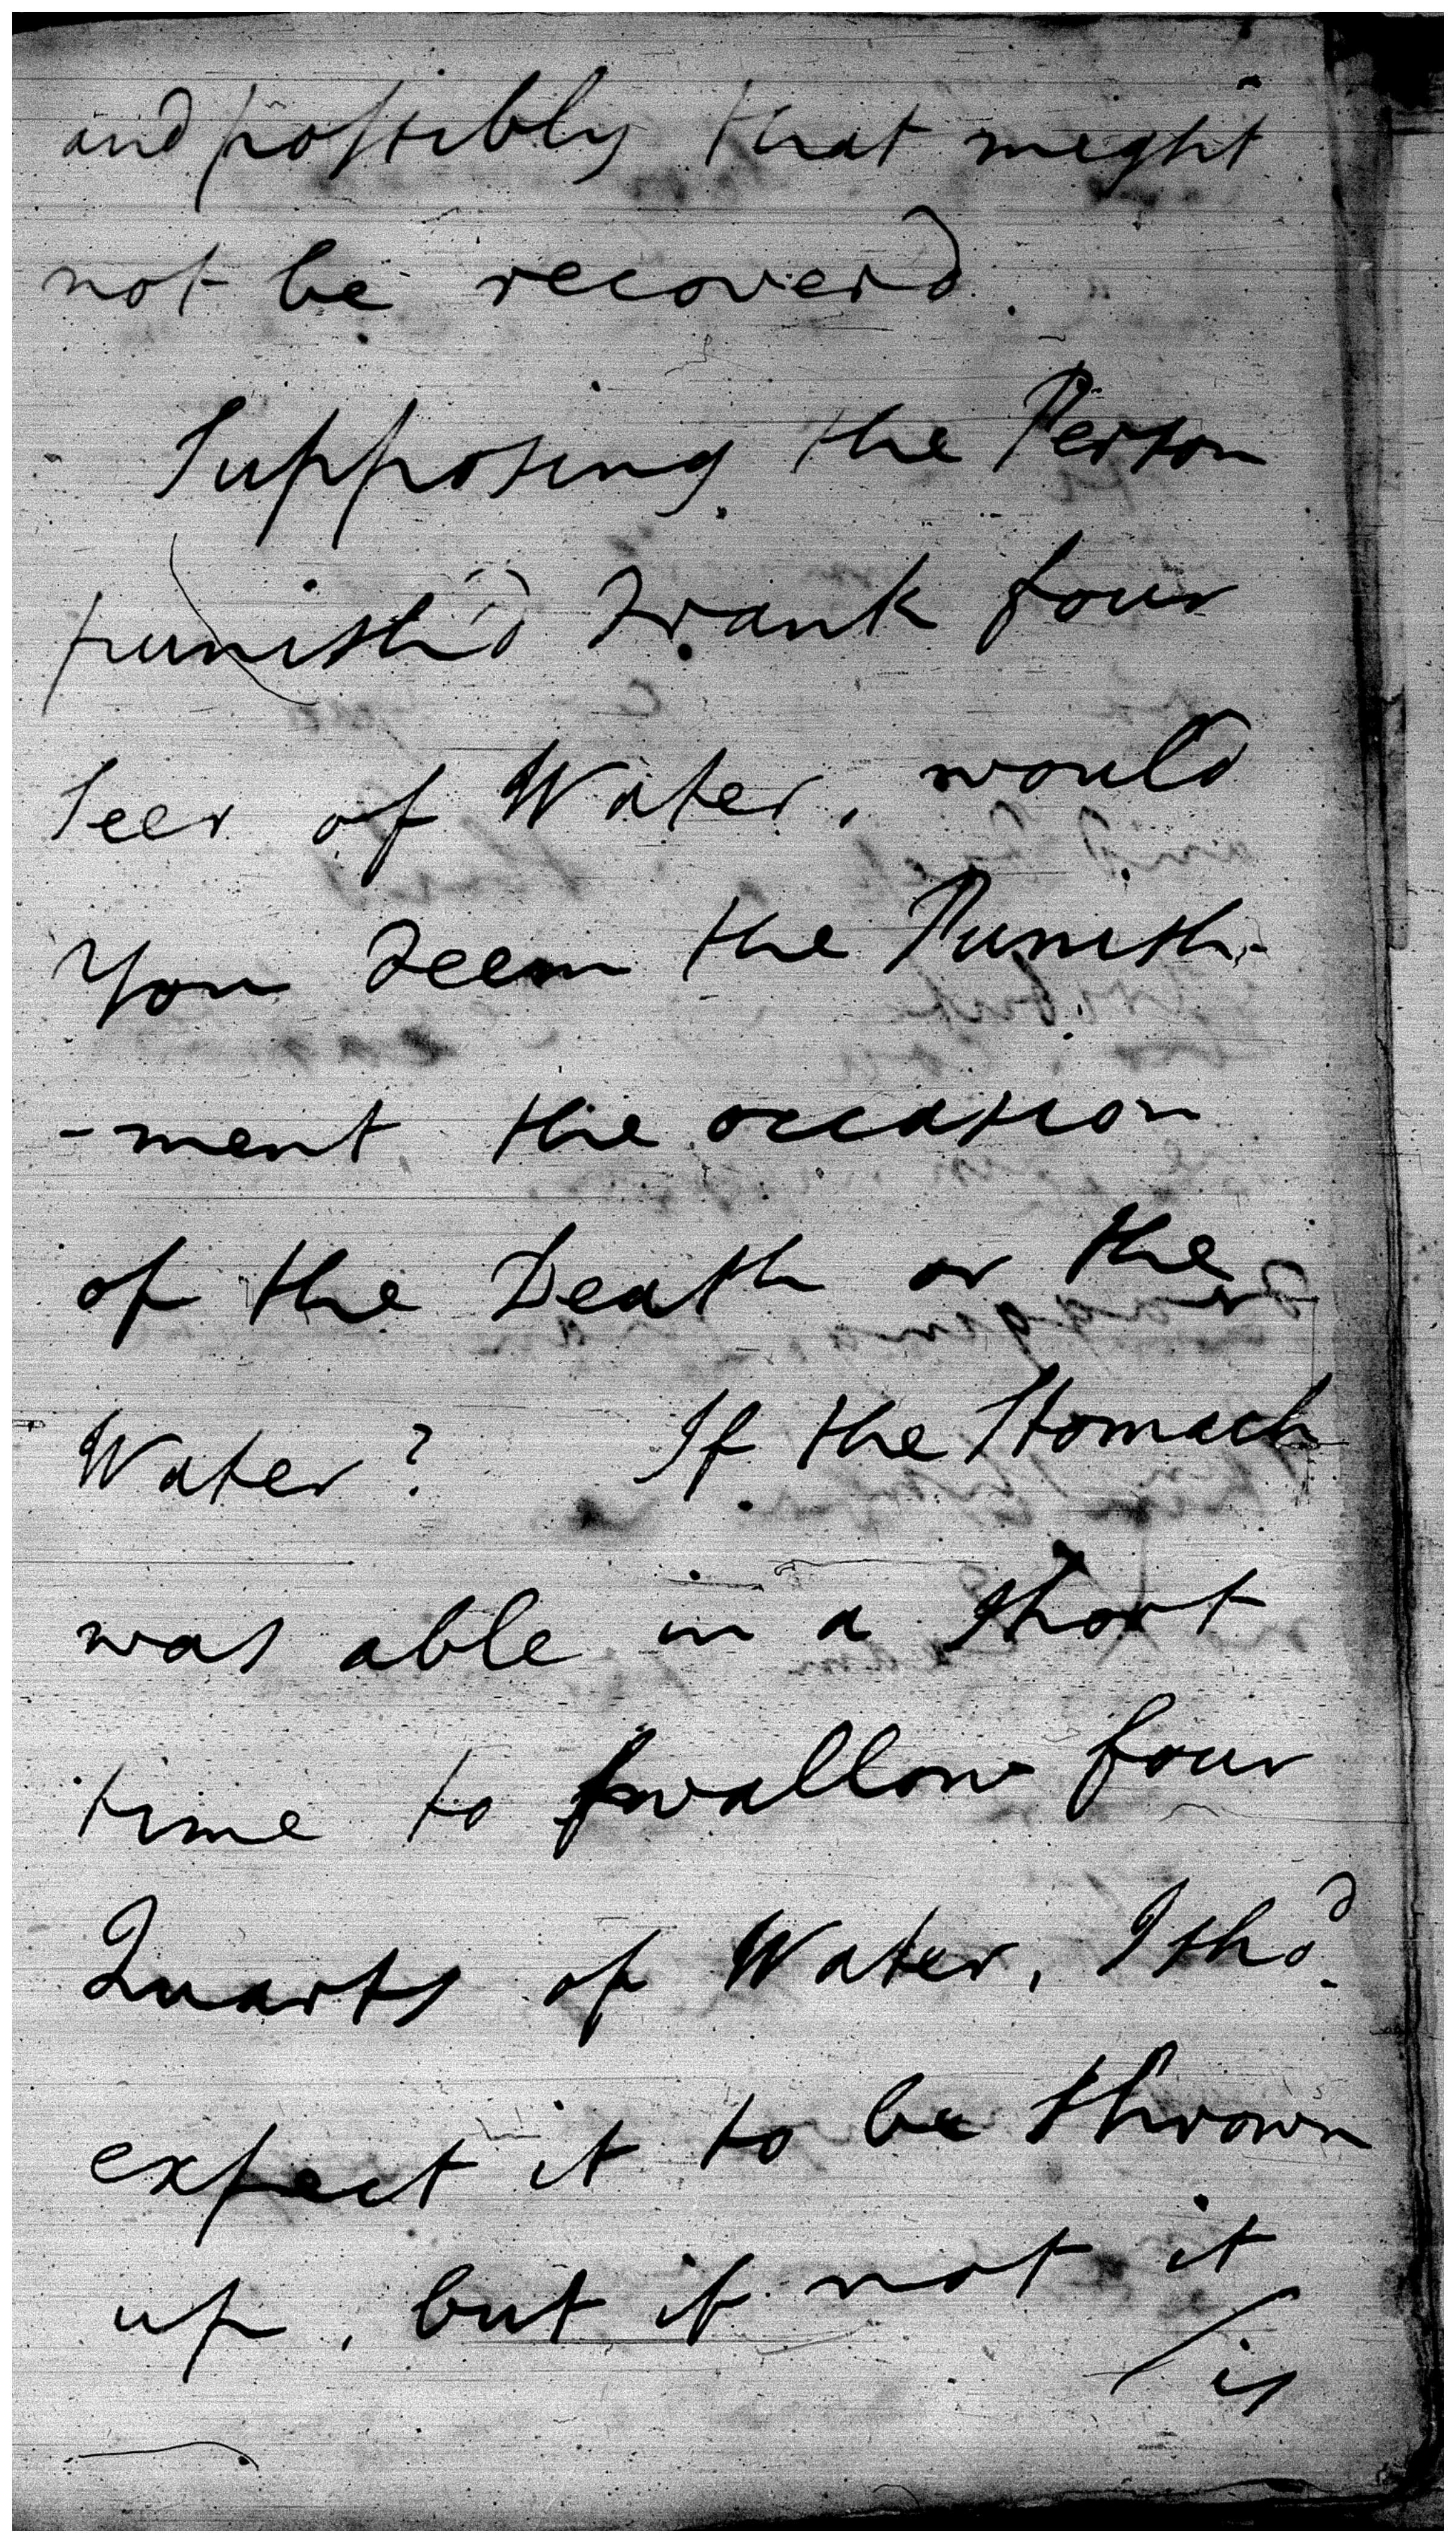 and possibly that might
not be recover'd.
Supposing the Person
punish'd drank four
Seer of Water, would
You deem the Punish-
-ment the occasion
of the Death or the
Water? If the Stomach
was able in a short
time to swallow four
Quarts of Water, I sho.d
expect it to be thrown
up, but if not it
/is